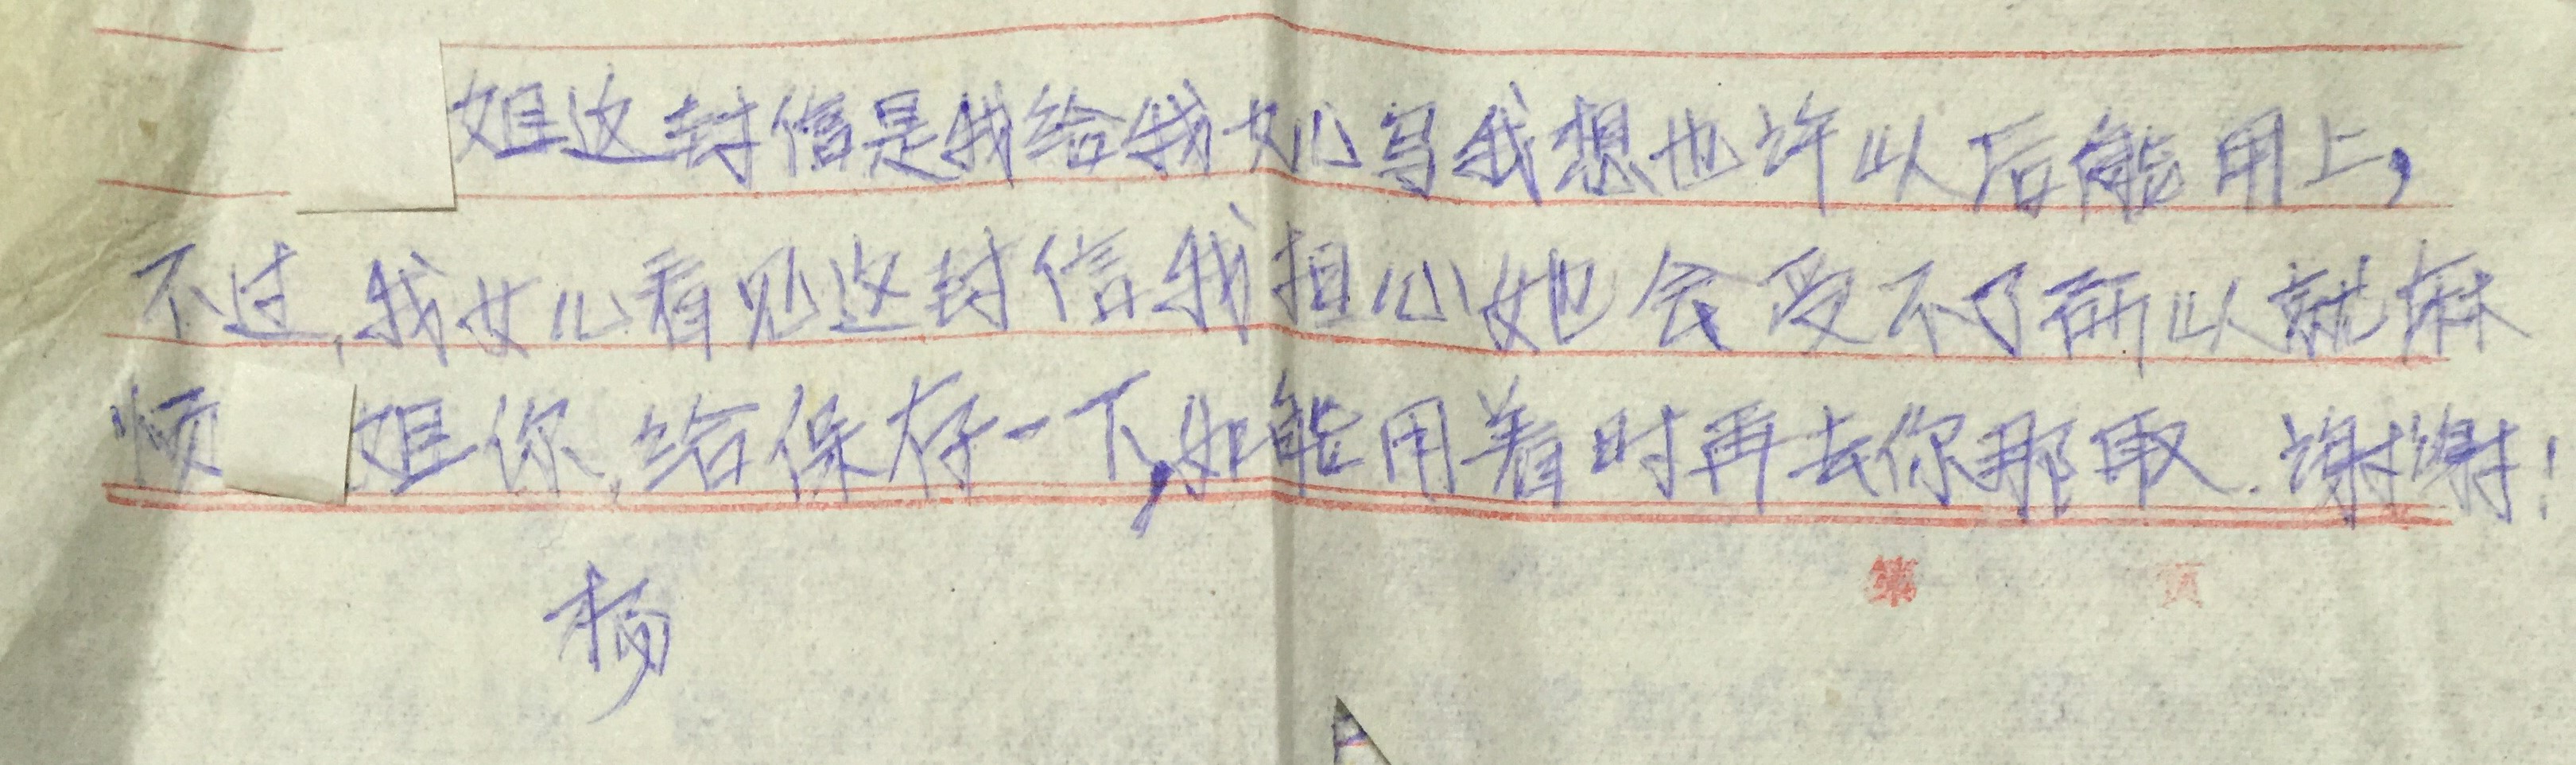 姐这封信是我给我女儿写我想也许以后能用上,
不过,我女儿看见这封信我担心她会受不了所以就麻
烦姐你,给保存一下,如能用着时再去你那取.谢谢!
第 页
杨